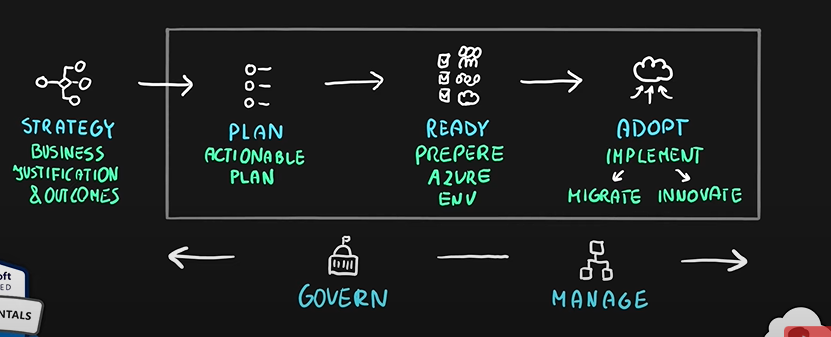 STRATEGY
BUSINESS
JUSTIFICATION
& OUTCOMES
PLAN
ACTIONABLE
PLAN
READY
PREPERE
AZURE
ENV
ADOPT
IMPLEMENT
MIGRATE INNOVATE
GOVERN
MANAGE
oft
ED
NTALS